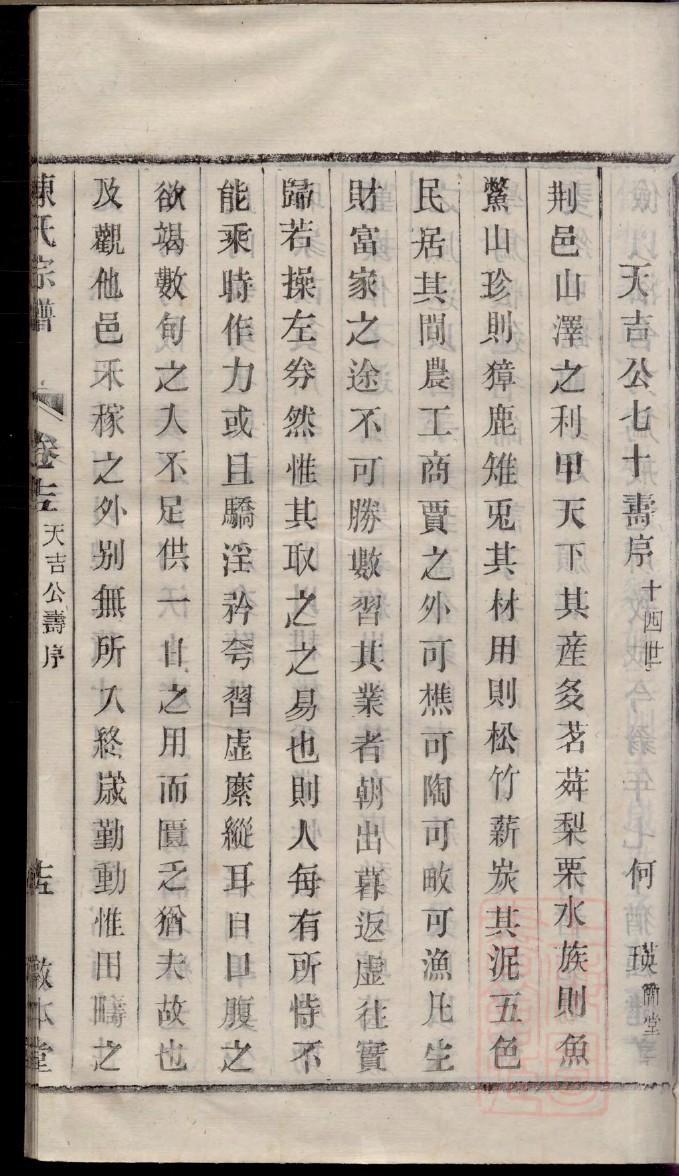 天吉公七十壽序十四世 何瑛簡堂
荆邑山澤之利甲天下其産多茗荈梨栗水族則魚
鱉山珍則獐鹿雉兎其材用則松竹薪炭其泥五色
民居其間農工商賈之外可樵可陶可畋可漁凡生
財富家之途不可勝數習其業者朝出暮返虚往實
歸若操左券然惟其取之之易也則人每有所恃不
能乘時作力或且驕淫矜夸習虚縻縱耳目口腹之
欲竭數旬之入不足供一日之用而匱乏猶夫故也
及觀他邑禾稼之外别無所入終嵗勤動惟田疇之
陳氏宗譜 卷 天吉公壽序 敬本堂